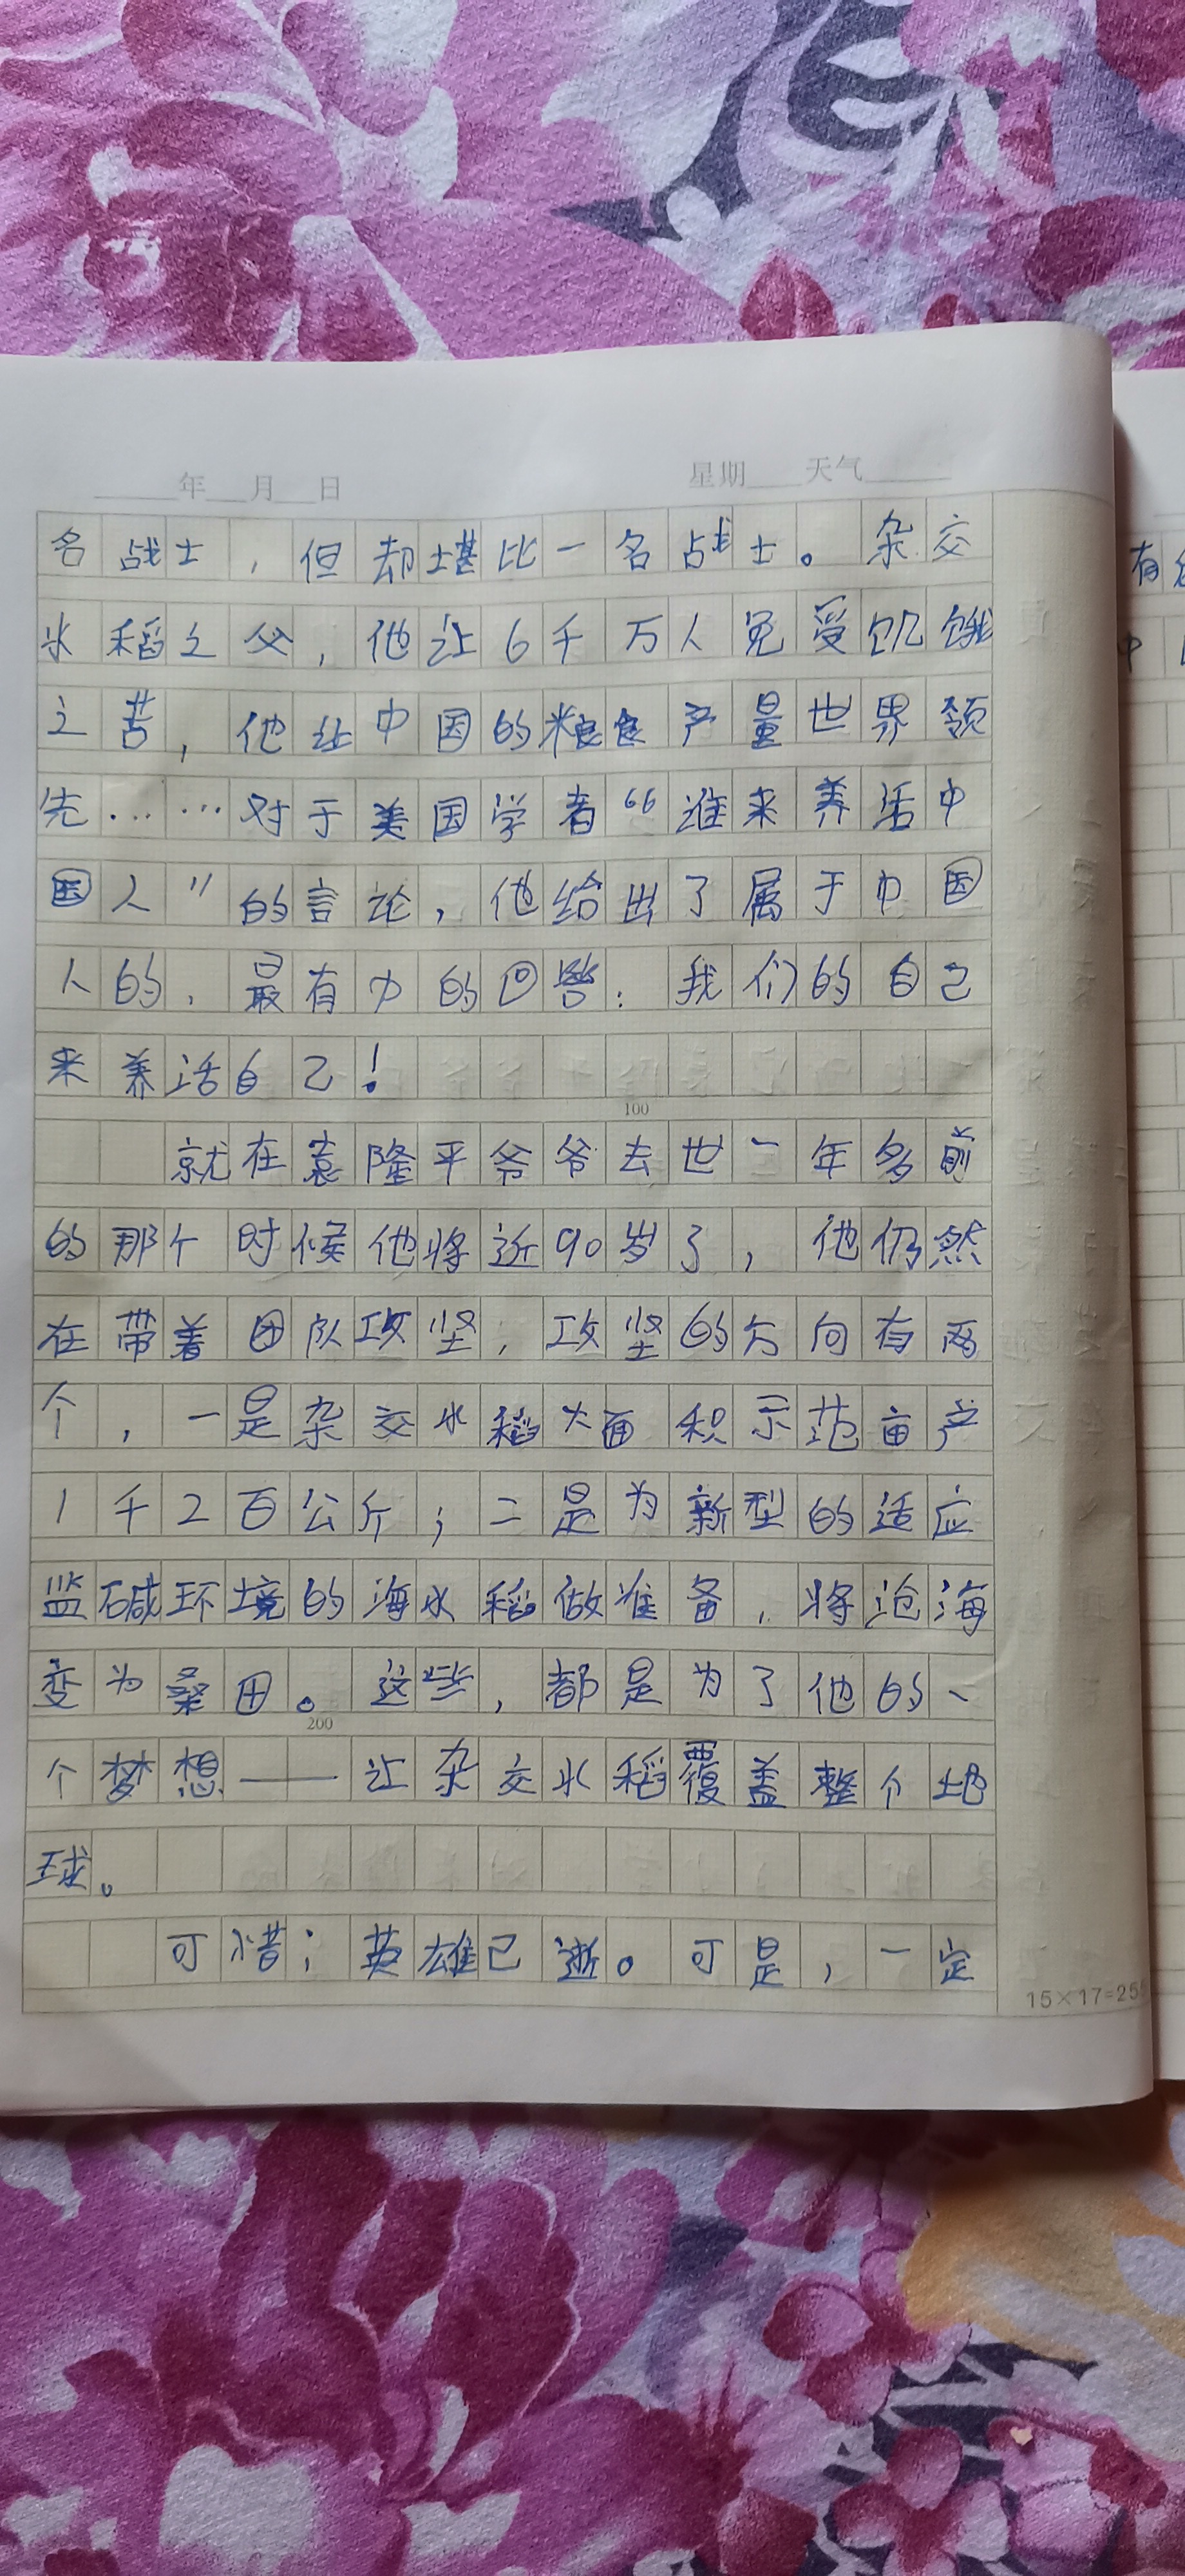 年 月 日 星期 天气
名战士，但却堪比一名战士。杂交
水稻之父，他让6千万人免受饥饿
之苦，他让中国的粮食产量世界领
先……对于美国学者“谁来养活中
国人”的言论，他给出了属于中国
人的，最有力的回答：我们的自己
来养活自己！
100
就在袁隆平爷爷去世一年多前
的那个时候他将近90岁了，他仍然
在带着团队攻坚，攻坚的方向有两
个，一是杂交水稻大面积示范亩产
1千2百公斤；二是为新型的适应
监碱环境的海水稻做准备，将沧海
变为桑田。这些，都是为了他的一
200
个梦想——让杂交水稻覆盖整个地
球。
可惜；英雄已逝。可是，一定
15×17=25
有
中